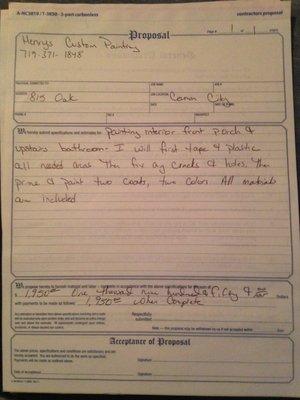 A-NC3819 / T-3850 - 3-part carbonless
contractors proposal
Proposal
Page #
of
pages
Henrys Custom Painting
719-371-1848
PROPOSAL SUBMITTED TO:
JOB NAME
JOB #
ADDRESS
815 Oak
JOB LOCATION
Canon City
DATE
DATE OF PLANS
PHONE #
FAX #
ARCHITECT
We hereby submit specifications and estimates for: Painting interior front porch &
upstairs bathroom - I will first tape & plastic
all needed areas. Then fix any cracks & holes, then
prime & paint two coats, two colors. All materials
are included
We propose hereby to furnish material and labor - complete in accordance with the above specifications for the sum of:
1,950 00 One thousand nine hundred & fifty & Dollars
with payments to be made as follows: 1,950 00 when complete
Any alteration or deviation from above specifications involving extra costs
will be executed only upon written order, and will become an extra charge
over and above the estimate. All agreements contingent upon strikes,
accidents, or delays beyond our control.
Respectfully
submitted
Note - this proposal may be withdrawn by us if not accepted within
days.
Acceptance of Proposal
The above prices, specifications and conditions are satisfactory and are
hereby accepted. You are authorized to do the work as specified.
Payments will be made as outlined above.
Signature
Date of Acceptance
Signature